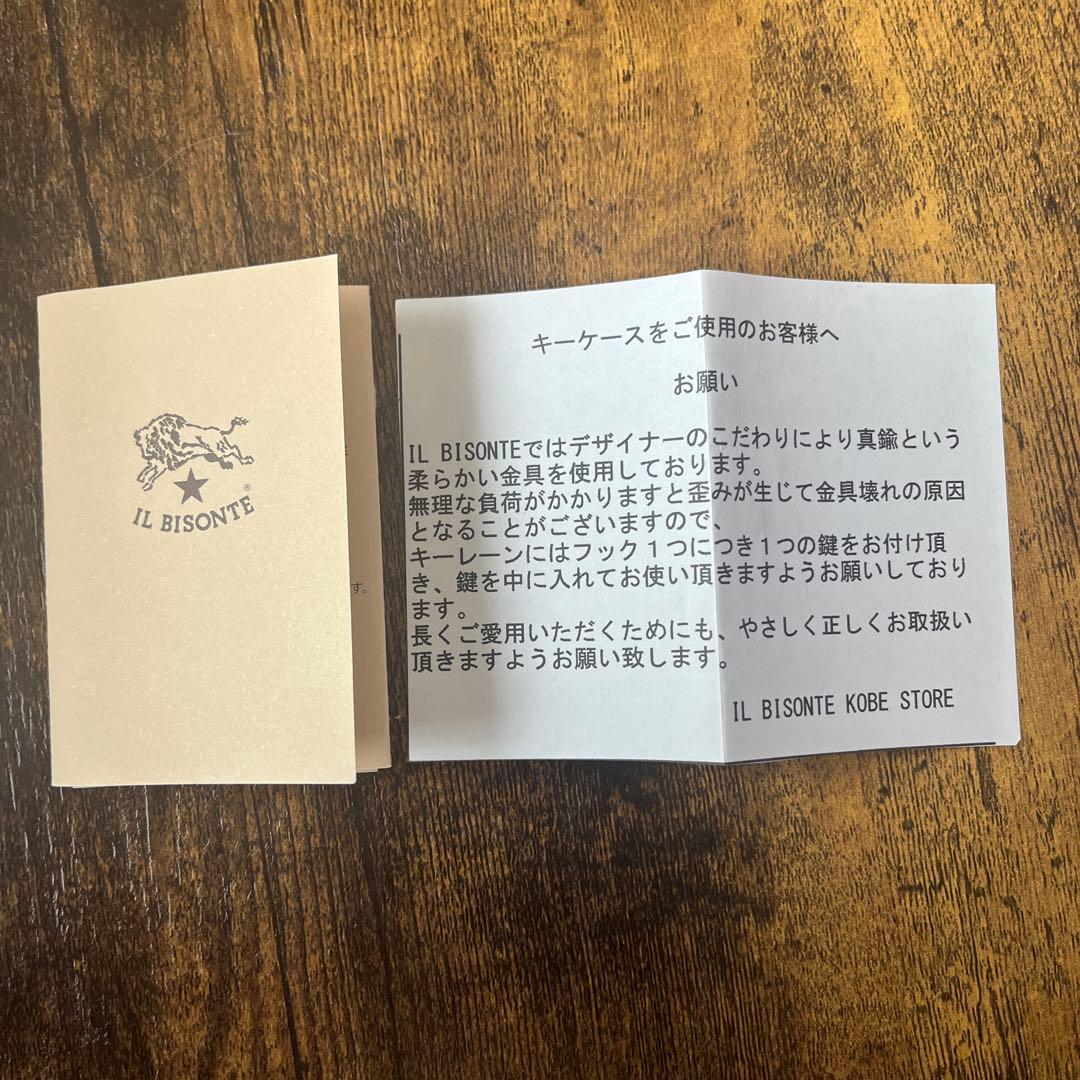 IL BISONTE
®
す。
キーケースをご使用のお客様へ
お願い
IL BISONTEではデザイナーのこだわりにより真鍮という
柔らかい金具を使用しております。
無理な負荷がかかりますと歪みが生じて金具壊れの原因
となることがございますので、
キーレーンにはフック１つにつき１つの鍵をお付け頂
き、鍵を中に入れてお使い頂きますようお願いしており
ます。
長くご愛用いただくためにも、やさしく正しくお取扱い
頂きますようお願い致します。
IL BISONTE KOBE STORE